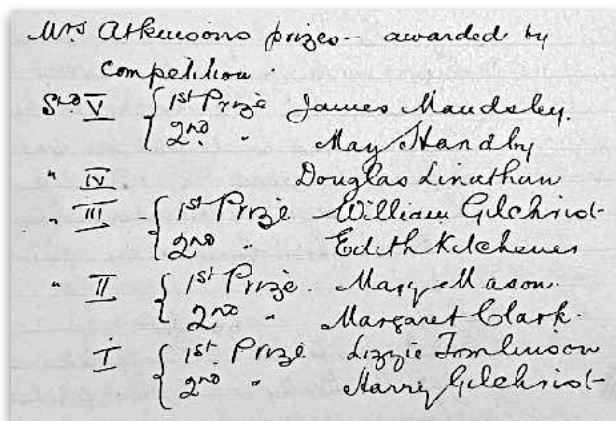 Mrs Atkinsons prizes - awarded by
competition.
Std V { 1st Prize James Maudsley.
2nd " May Handby
" IV Douglas Linathan
" III - { 1st Prize William Gilchrist
2nd " Edith Kitchener
" II { 1st Prize. Mary Mason.
2nd " Margaret Clark.
I { 1st Prize Lizzie Tomlinson
2nd " Harry Gilchrist